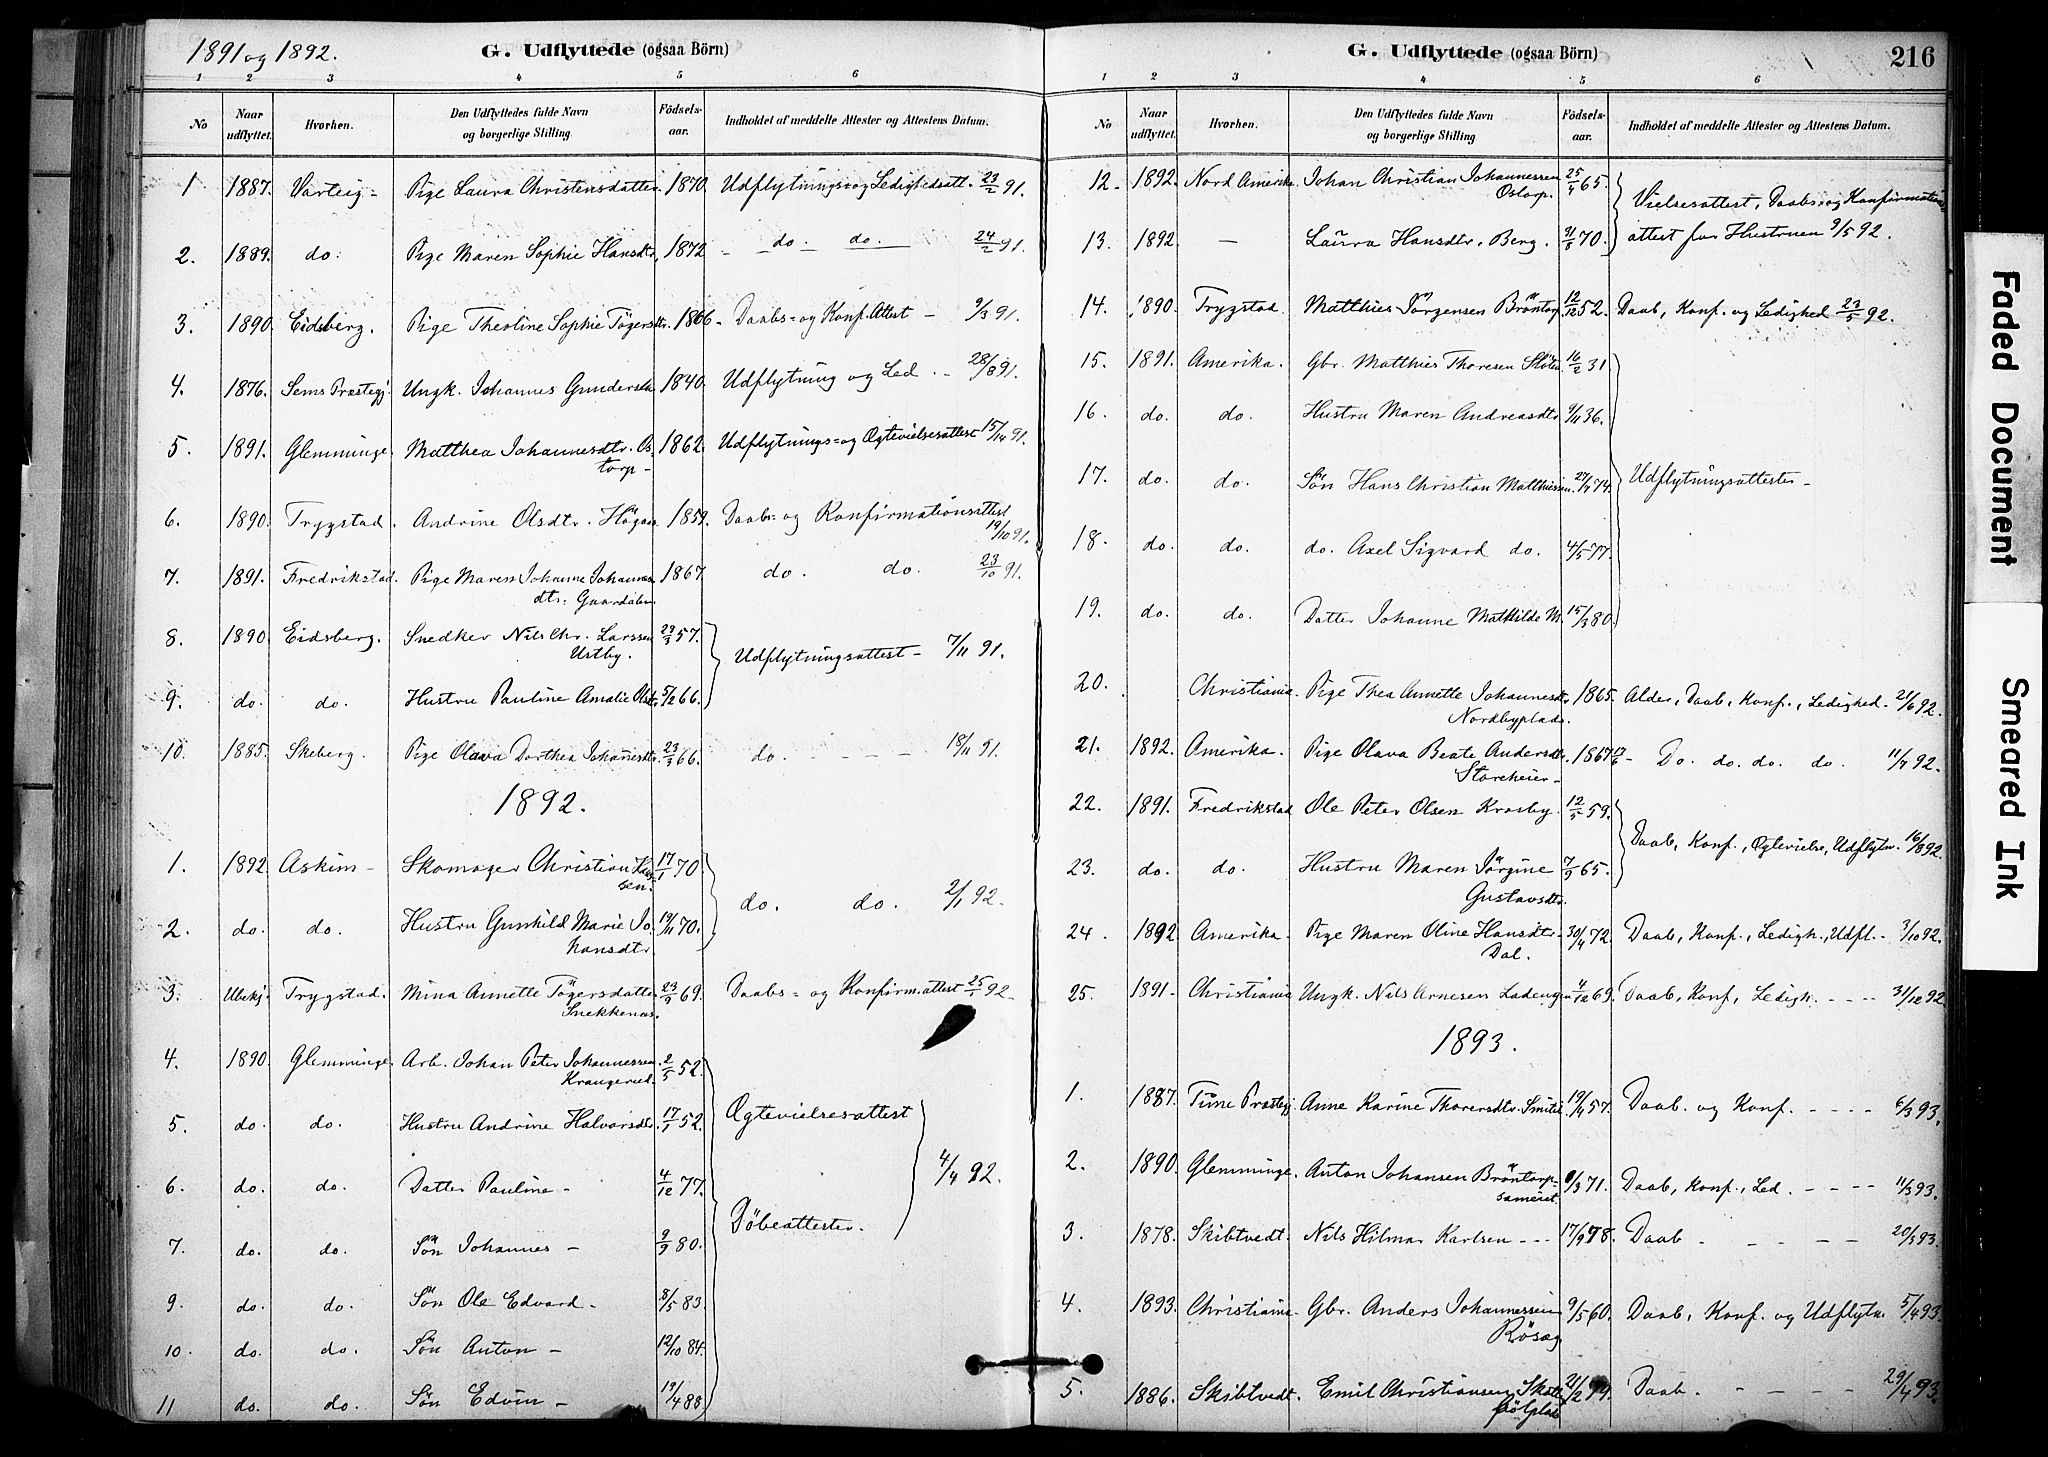 1891 og 1892.
G. Udflyttede (ogsaa Börn)
1 2 3 4 5 6
No
Naar udflyttet.
Hvorhen.
Den Udflyttedes fulde Navn og borgerlige Stilling
Födsels-aar.
Indholdet af meddelte Attester og Attestens Datum.
1 1887. Varteig - Pige Laura Christensdatter 1870. Udflytnings og Ledighedsatt. 23/2 91.
2. 1889. do. Pige Maren Sophie Hansdtr. 1872 - do. do. 24/2 91.
3. 1890. Eidsberg. Pige Theoline Sophie Tögersdtr. 1866 - Daabs- og Konf. Attest - 9/3 91.
4. 1876. Sems Præstegj. Ungk. Johannes Gundersen 1840. Udflytning og Led. - 28/8 91.
5. 1891. Glemminge. Matthea Johannesdtr. Os-
torp - 1862. Udflytnings- og Ægtevielsesattest 15/10 91.
6. 1890. Trygstad. Andrine Olsdtr. Högaas 1859. Daabs- og Konfirmationsattest
19/10 91.
7. 1891. Fredrikstad. Pige Maren Johanne Johannes
dtr. Gaardalen 1867 do. do. 23/10 91.
8. 1890 Eidsberg. Snedker Nils Chr. Larssen
Ustby. 29/3 57.
Udflytningsattest - 7/11 91.
9. do. do. Hustru Pauline Amalie Olsdtr. 5/2 66.
10. 1885. Skeberg. Pige Olava Dorthea Johannesdtr. 23/3 66. do. - - - - 18/11 91.
1892.
1. 1892. Askim - Skomager Christian Lars-
sen. 17/1 70.
do. do. 2/1 92.
2. do. do. Hustru Gunhild Marie Jo-
hansdtr. 19/11 70.
3. Ubekj. Trygstad. Mina Annette Tögersdatter
Snekkenas. 23/9 69. Daabs- og Konfirm.attest 25/1 92 -
4. 1890. Glemminge. Arb. Johan Peter Johannessen
Krangerud. 2/5 52.
Ægtevielsesattest
5. do. do. Hustru Andrine Halvorsdtr. 17/1 52.
4/4 92.
6. do. do. Datter Pauline - 4/12 77.
Döbeattester.
7. do. do. Sön Johannes - 9/9 80.
9. do. do. Sön Ole Edvard - 8/5 83.
10. do. do. Sön Anton - 12/10 84.
11 do. do. Sön Edvin - 19/4 88.
G. Udflyttede (ogsaa Börn)
216
1 2 3 4 5 6
No
Naar udflyttet.
Hvorhen.
Den Udflyttedes fulde Navn og borgerlige Stilling
Födsels-aar.
Indholdet af meddelte Attester og Attestens Datum.
12. 1892. Nord Amerika. Johan Christian Johannessen
Ostorp. 25/4 65.
Vielsesattest, Daabs- og Konfirmations-
attest for Hustruen 9/5 92.
13. 1892. - Laura Hansdtr. Berg. 21/5 70.
14. 1890. Trygstad Matthies Jörgensen Bröntorp 12/12 52. Daab, Konf. og Ledighed 23/5 92.
15. 1891. Amerika. Gbr. Matthies Thoresen 16/2 31
16. do. do. Hustru Maren Andreasdtr. 9/11 36.
17. do. do. Sön Hans Christian Matthiesen. 27/7 74. Udflytningsattester -
18. do. do. do. Axel Sigvard do. 4/5 77.
19. do. do. Datter Johanne Mathilde M. 15/3 80.
20. Christiania. Pige Thea Annette Johannesdtr.
Nordbyplads. 1865. Alder, Daab, Konf., Ledighed. 21/6 92.
21. 1892. Amerika. Pige Olava Beate Andersdtr.
Storeheier - 1867 17/6 - Do. do. do. do. 11/7 92.
22. 1891. Fredrikstad Ole Peter Olsen Krosby. 12/5 59.
Daab, Konf., Ægtevielse, Udflytn. 16/8 92.
23. do. do. Hustru Maren Jörgine
Gustavsdtr. 7/9 65.
24. 1892 Amerika. Pige Maren Oline Hansdtr.
Dal. 30/4 72. Daab, Konf., Ledigh., Udfl. - 3/10 92.
25. 1891 - Christiania Ungk. Nils Arnesen Ladengen 4/12 69. Daab, Konf., Ledigh. - - - - 31/12 92
1893.
1. 1887. Tune Præstegj. Anne Karine Thoresdtr. 19/4 57. Daab. og Konf. - - - - 6/3 93.
2. 1890. Glemminge. Anton Johansen Bröntorp-
sameiet. 8/3 71. Daab, Konf., Led. - - - - 11/3 93.
3. 1878. Skibtvedt. Nils Hilmar Karlsen - - - 17/9 78. Daab - - - - 20/3 93.
4. 1893. Christiania. Gbr. Anders Johannessen
Rösæg 9/5 60. Daab, Konf. og Udflytn. 5/4 93.
5. 1886. Skibtvedt. Emil Christiansen 21/2 79. Daab. - - - - 29/4 93.
Faded Document
Smeared Ink